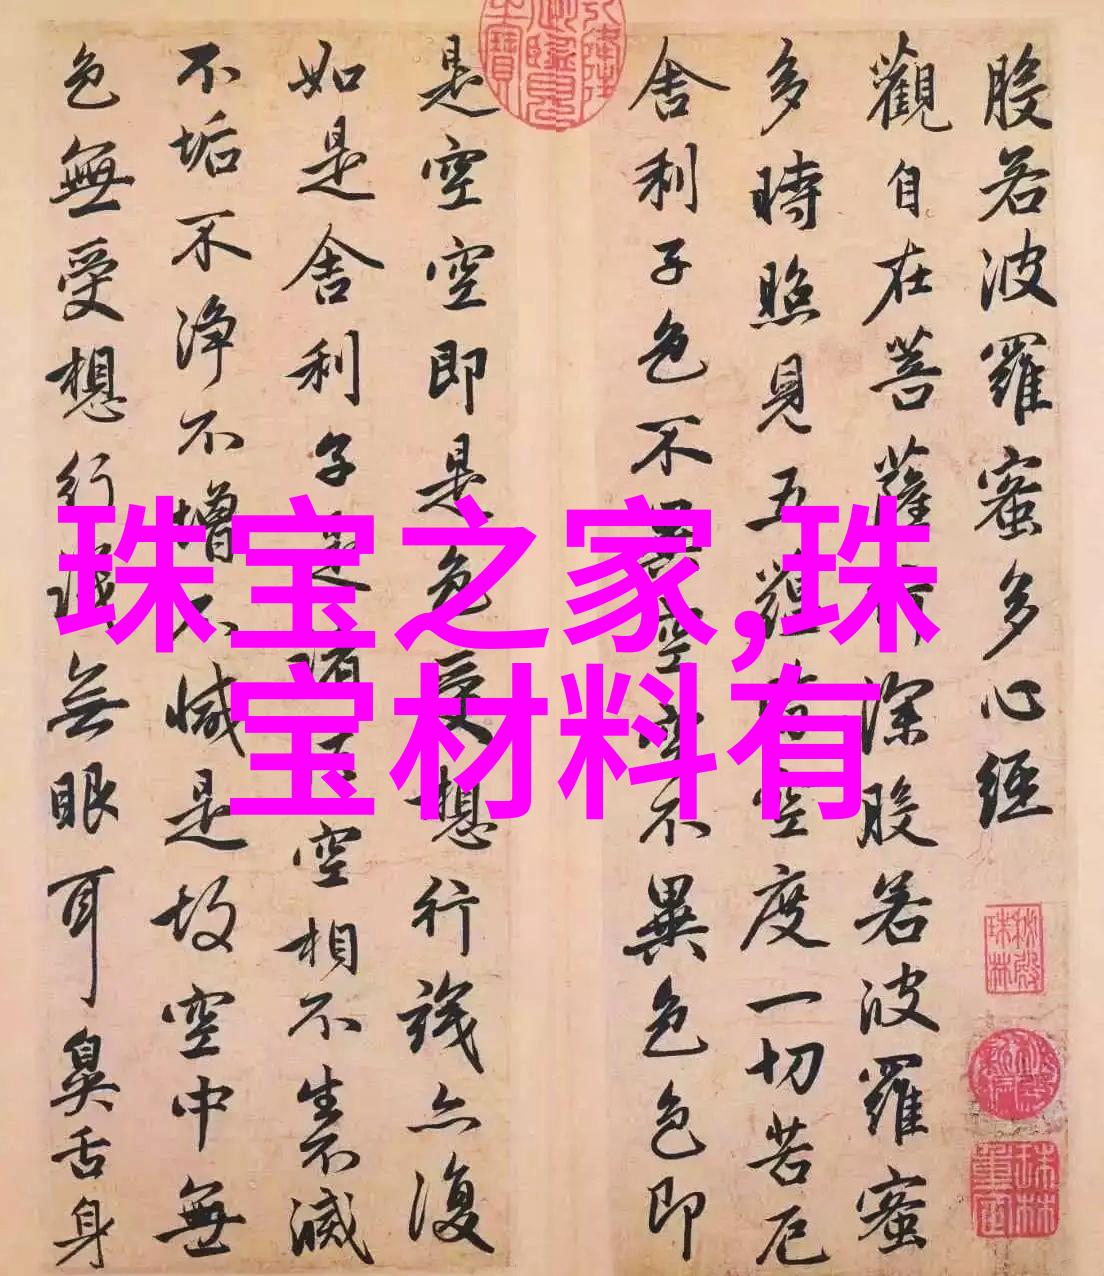 般若波羅蜜多心經
觀自在菩薩行深般若波羅蜜
多時照見五蘊皆空度一切苦厄
舍利子色不異空空不異色色即
是空空即是色受想行識亦復
如是舍利子是諸空相不生不滅
不垢不净不增不減是故空中無
色無受想行識無眼耳鼻舌身
珠宝之家,珠
宝材料有